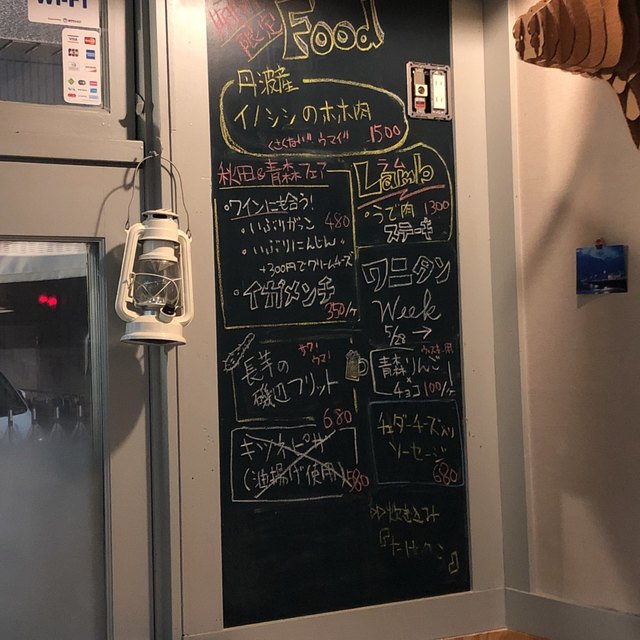 Wi-Fi
VISA
限定
Food
丹波産
イノシシのホホ肉
くさくない! ウマイ!! 1500
秋田&青森フェアー
・ワインにも合う!
・いぶりがっこ 480
・いぶりにんじん 〃
+300円でクリームチーズ
・イガメンチ
350/ヶ
ラム
Lamb
ステーキ
1300
ワニタン
Week
5/28 →
長芋の
磯辺フリット
サク!
ウマ!
680
青森りんご
×
チョコ 100/ヶ
チェダーチーズ入り
ソーセージ
680
キツネピザ
(油揚げ使用) 580
▷▷炊き込み